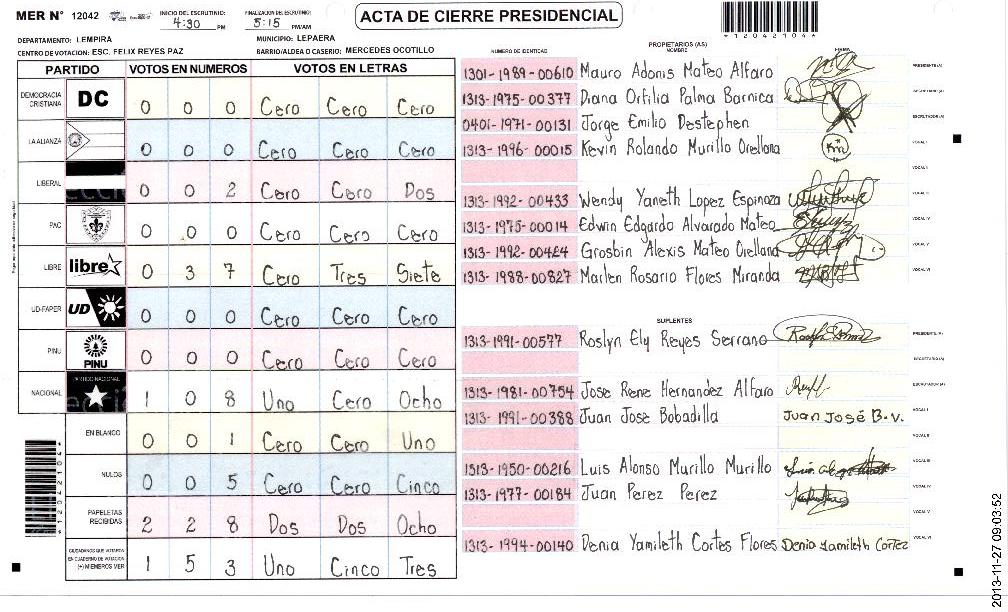 MER N° 12042
INICIO DEL ESCRUTINIO: 4:30 PM
FINALIZACION DEL ESCRUTINIO: 5:15 PM/AM
ACTA DE CIERRE PRESIDENCIAL
12042104
DEPARTAMENTO: LEMPIRA
MUNICIPIO: LEPAERA
CENTRO DE VOTACION: ESC. FELIX REYES PAZ
BARRIO/ALDEA O CASERIO: MERCEDES OCOTILLO
PARTIDO VOTOS EN NUMEROS VOTOS EN LETRAS
DEMOCRACIA CRISTIANA DC 0 0 0 Cero Cero Cero
LA ALIANZA 0 0 0 Cero Cero Cero
LIBERAL 0 0 2 Cero Cero Dos
PAC 0 0 0 Cero Cero Cero
LIBRE libre 0 3 7 Cero Tres Siete
UD-FAPER UD 0 0 0 Cero Cero Cero
PINU PINU 0 0 0 Cero Cero Cero
NACIONAL PARTIDO NACIONAL 1 0 8 Uno Cero Ocho
EN BLANCO 0 0 1 Cero Cero Uno
NULOS 0 0 5 Cero Cero Cinco
PAPELETAS RECIBIDAS 2 2 8 Dos Dos Ocho
CIUDADANOS QUE VOTARON EN CUADERNO DE VOTACION (+) MIEMBROS MER 1 5 3 Uno Cinco Tres
12042104
PROPIETARIOS (AS)
NUMERO DE IDENTIDAD NOMBRE FIRMA
1301-1989-00610 Mauro Adonis Mateo Alfaro PRESIDENTE (A)
1313-1975-00377 Diana Orfilia Palma Barnica SECRETARIO (A)
0401-1971-00131 Jorge Emilio Destephen ESCRUTADOR (A)
1313-1996-00015 Kevin Rolando Murillo Orellana VOCAL I
VOCAL II
1313-1992-00433 Wendy Yaneth Lopez Espinoza VOCAL III
1313-1975-00014 Edwin Edgardo Alvarado Mateo VOCAL IV
1313-1992-00424 Grosbin Alexis Mateo Orellana VOCAL V
1313-1988-00827 Marlen Rosario Flores Miranda VOCAL VI
SUPLENTES
1313-1991-00577 Roslyn Ely Reyes Serrano PRESIDENTE (A)
SECRETARIO (A)
1313-1981-00754 Jose Rene Hernandez Alfaro ESCRUTADOR (A)
1313-1991-00388 Juan Jose Bobadilla Juan José B.v. VOCAL I
VOCAL II
1313-1950-00216 Luis Alonso Murillo Murillo VOCAL III
1313-1977-00184 Juan Perez Perez VOCAL IV
VOCAL V
1313-1994-00140 Denia Yamileth Cortes Flores Denia Yamileth Cortez VOCAL VI
2013-11-27 09:03:52